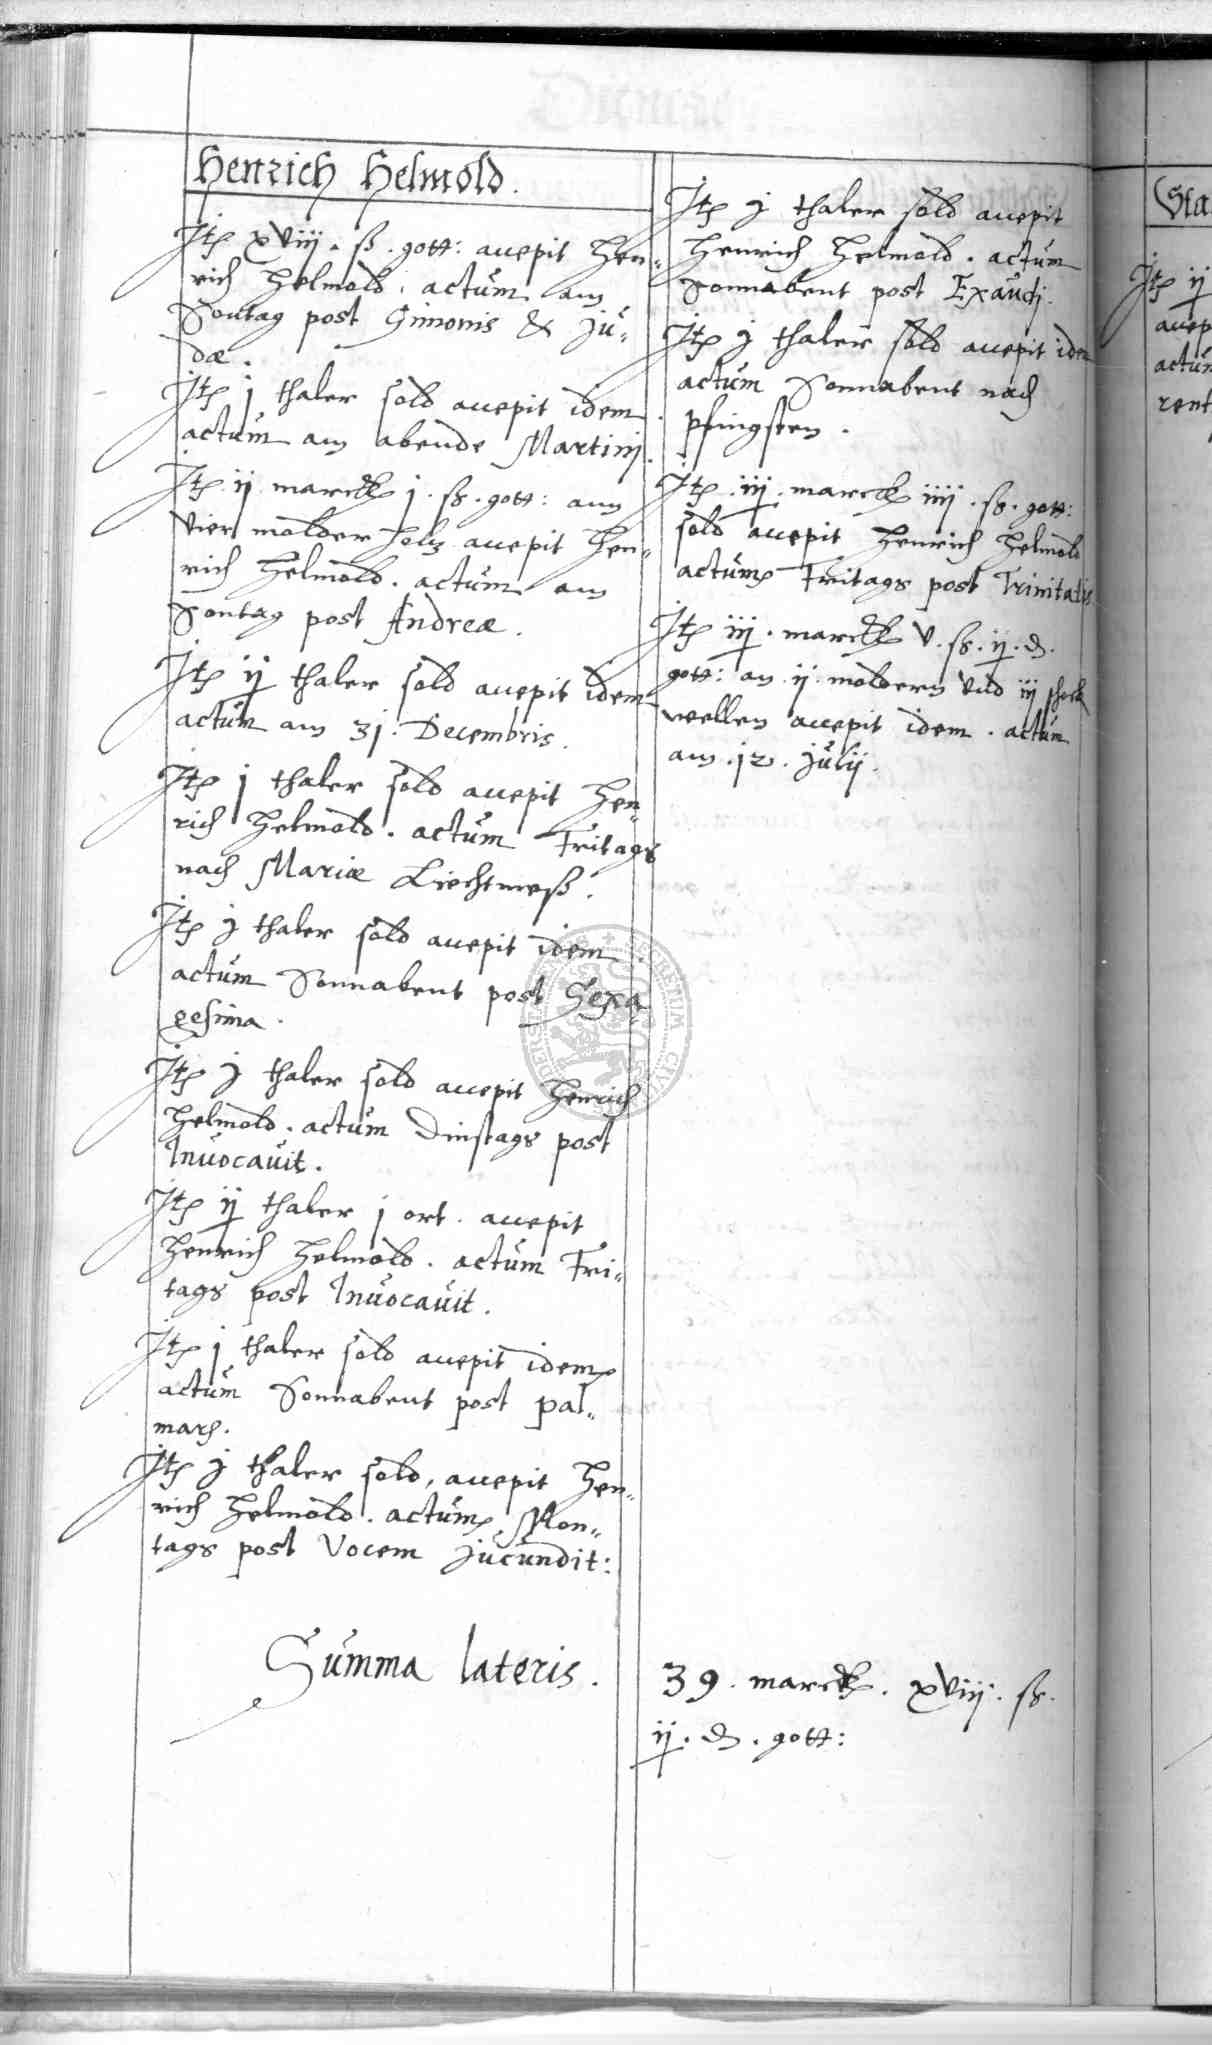 Henrich Helmold.
Itē xviij. ß. gott: accepit Hen-
rich Helmold. actum am
Sontag post Simonis & Ju-
dæ.
Itē j thaler sold accepit idem.
actum am abende Martinj.
Itē ij marck j. ß. gott: ann
vier molder holtz accepit Hen-
rich Helmold. actum am
Sontag post Andreæ.
Itē ij thaler sold accepit idem
actum am 31. Decembris.
Itē j thaler sold accepit Hen-
rich Helmold. actum Fritags
nach Mariæ Liechtmeß.
Itē j thaler sold accepit idem.
actum Sonnabent post Sexa-
gesima.
Itē j thaler sold accepit Henrich
Helmold. actum Dinstags post
Invocavit.
Itē ij thaler j ort. accepit
Henrich Helmold. actum Fri-
tags post Invocavit.
Itē j thaler sold accepit idem
actum Sonnabent post Pal-
marū.
Itē j thaler sold, accepit Hen-
rich Helmold. actum Mon-
tags post Vocem Jucundit:
Itē j thaler sold accepit
Henrich Helmold. actum
Sonnabent post Exaudj.
Itē j thaler sold accepit idem
actum Sonnabent nach
Pfingsten.
Itē iij. marck iiij. ß. gott:
sold accepit Henrich Helmold
actum Fritags post Trinitatis
Itē iij. marck v. ß. ij. d.
gott: an ij. moldern vnd iij schock
wellen accepit idem. actum
am. 12. Julij.
Summa lateris.
39. marck. xviij. ß.
ij. d. gott:
Sta
Itē ij
accep
actum
rent
SECRETUM CIVI